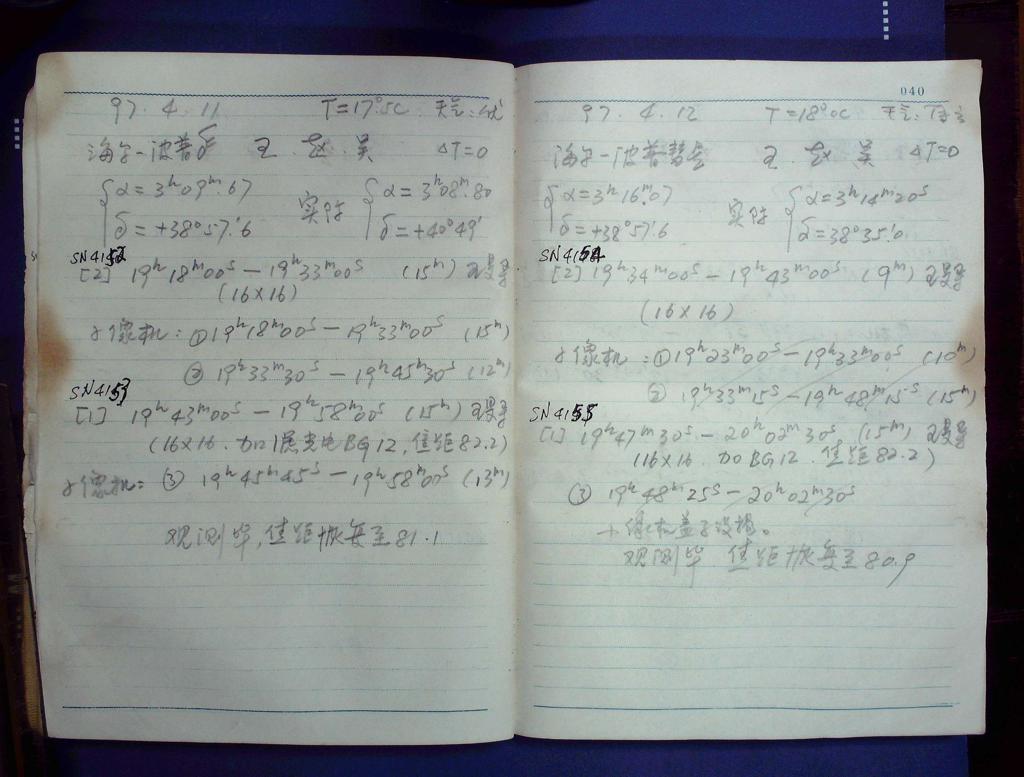 97.4.11 T=17°.5C 天气:优
海尔-波普 王.赵.吴 ΔT=0
α=3ʰ09ᵐ.67 实际 α=3ʰ08ᵐ.80
δ=+38°57'.6 δ=+40°49'
SN4152
[2] 19ʰ18ᵐ00ˢ-19ʰ33ᵐ00ˢ (15ᵐ)
(16×16)
像机:①19ʰ18ᵐ00ˢ-19ʰ33ᵐ00ˢ (15ᵐ)
② 19ʰ33ᵐ30ˢ-19ʰ45ᵐ30ˢ (12ᵐ)
SN4153
[1] 19ʰ43ᵐ00ˢ-19ʰ58ᵐ00ˢ (15ᵐ)
(16×16. 加 BG12,焦距82.2)
像机: ③ 19ʰ45ᵐ45ˢ-19ʰ58ᵐ00ˢ (13ᵐ)
观测毕,焦距恢复至81.1
040
97.4.12 T=18°.0C 天气:
海尔-波普彗星 王.赵.吴 ΔT=0
α=3ʰ16ᵐ.07 实际 α=3ʰ14ᵐ20ˢ
δ=+38°57'.6 α=38°35'.0
SN4154
[2] 19ʰ34ᵐ00ˢ-19ʰ43ᵐ00ˢ (9ᵐ)
(16×16)
像机:①19ʰ23ᵐ00ˢ-19ʰ33ᵐ00ˢ (10ᵐ)
② 19ʰ33ᵐ15ˢ-19ʰ48ᵐ15ˢ (15ᵐ)
SN4155
[1] 19ʰ47ᵐ30ˢ-20ʰ02ᵐ30ˢ (15ᵐ)
(16×16. 加BG12.焦距82.2)
③ 19ʰ48ᵐ25ˢ-20ʰ02ᵐ30ˢ
像机盖子没揭。
观测毕 焦距恢复至80.9